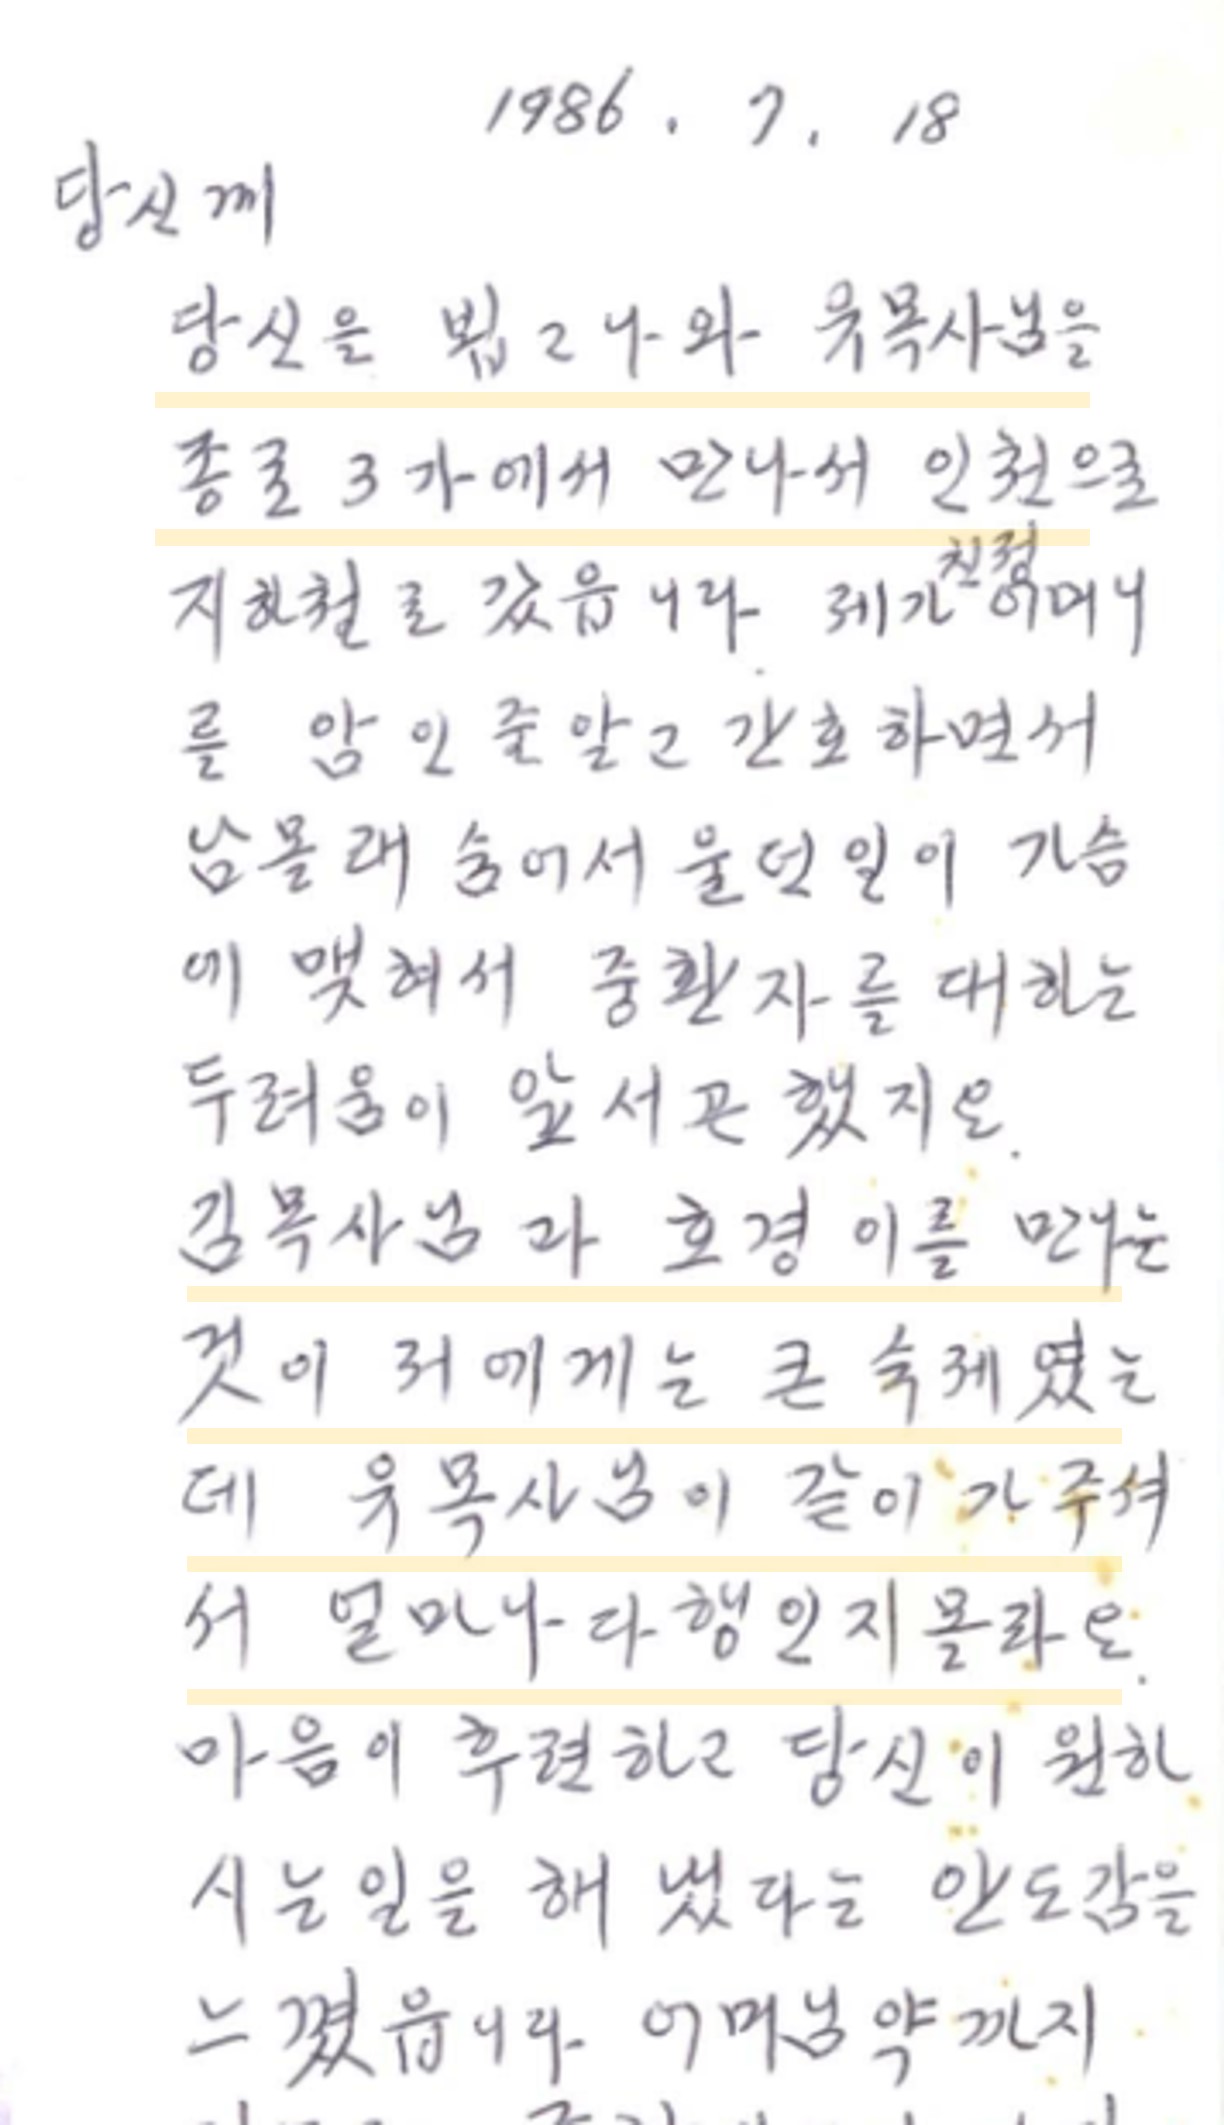 1986. 7. 18
당신께
당신을 뵙고 나와 유목사님을
종로 3가에서 만나서 인천으로
지하철로 갔읍니다. 제가 친정어머니
를 암인줄 알고 간호하면서
남몰래 숨어서 울던일이 가슴
에 맺혀서 중환자를 대하는
두려움이 앞서곤 했지요.
김목사님과 호경이를 만나는
것이 저에게는 큰 숙제였는
데 유목사님이 같이 가주셔
서 얼마나 다행인지 몰라요.
마음이 후련하고 당신이 원하
시는일을 해냈다는 안도감을
느꼈읍니다 어머님 약까지